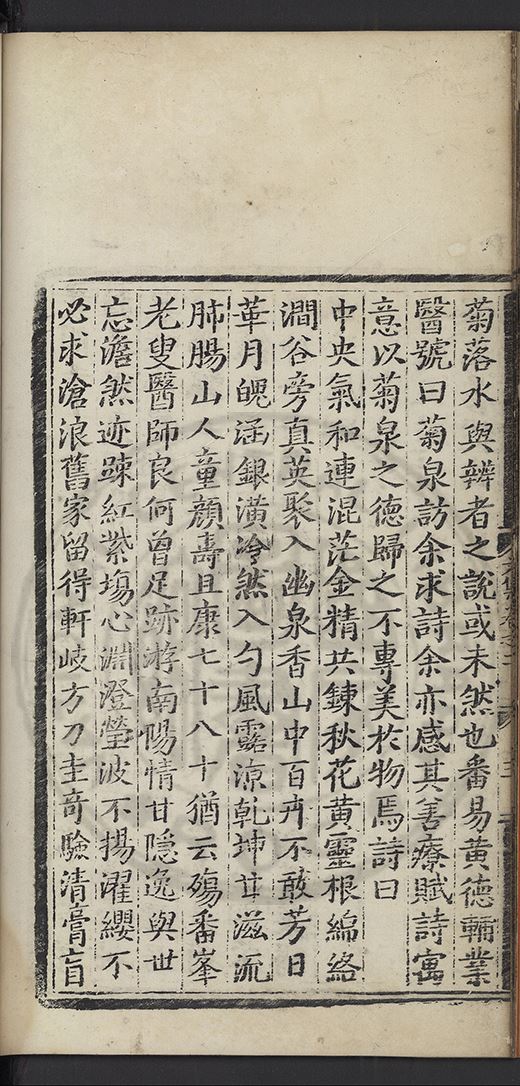 菊落水與辨者之說或未然也番昜黃德輔業
醫號曰菊泉訪余求詩余亦感其善療賦詩寓
意以菊泉之德歸之不專美於物焉詩曰
中央氣和連混茫金精共鍊秋花黃靈根綿絡
澗谷旁真英聚入幽泉香山中百卉不敢芳日
華月魄涵銀潢冷然入勺風露涼乾坤廿滋流
肺腸山人童顏壽且康七十八十猶云殤番峯
老叟醫師良何曾足跡游南陽情甘隱逸與世
忘澹然迹踈紅紫塲心淵澄瑩波不揚濯纓不
必求滄浪舊家留得軒岐方刀圭奇驗清膏肓